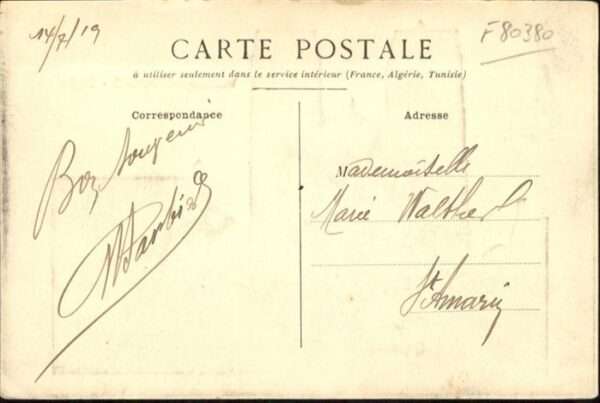 14/7/19
F80380
CARTE POSTALE
à utiliser seulement dans le service intérieur (France, Algérie, Tunisie)
Correspondance
Bon souvenir
Adresse
Mademoiselle
Marie Walther
St Amarin